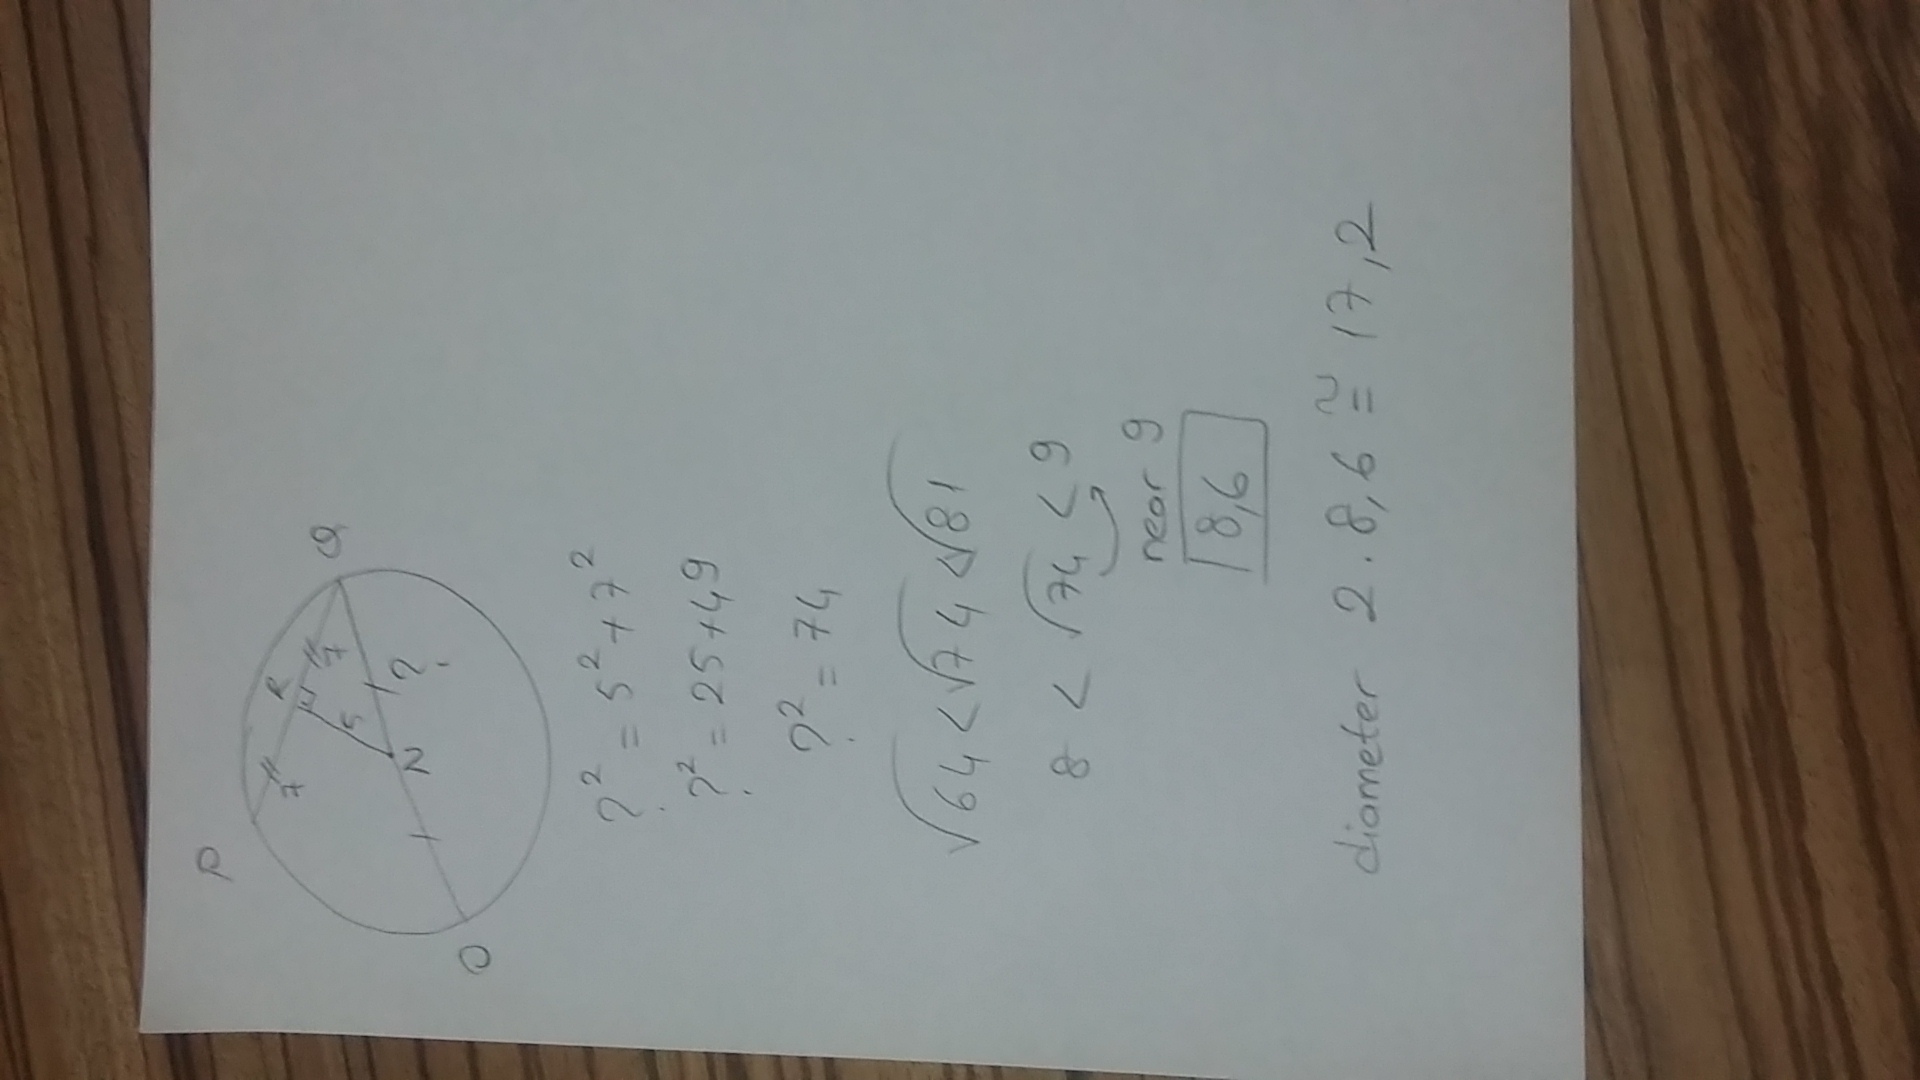 P
Q
R
7
7
5
?
N
O
?² = 5² + 7²
?² = 25 + 49
?² = 74
√64 < √74 < √81
8 < √74 < 9
near 9
8,6
diameter 2 . 8,6 ≅ 17,2